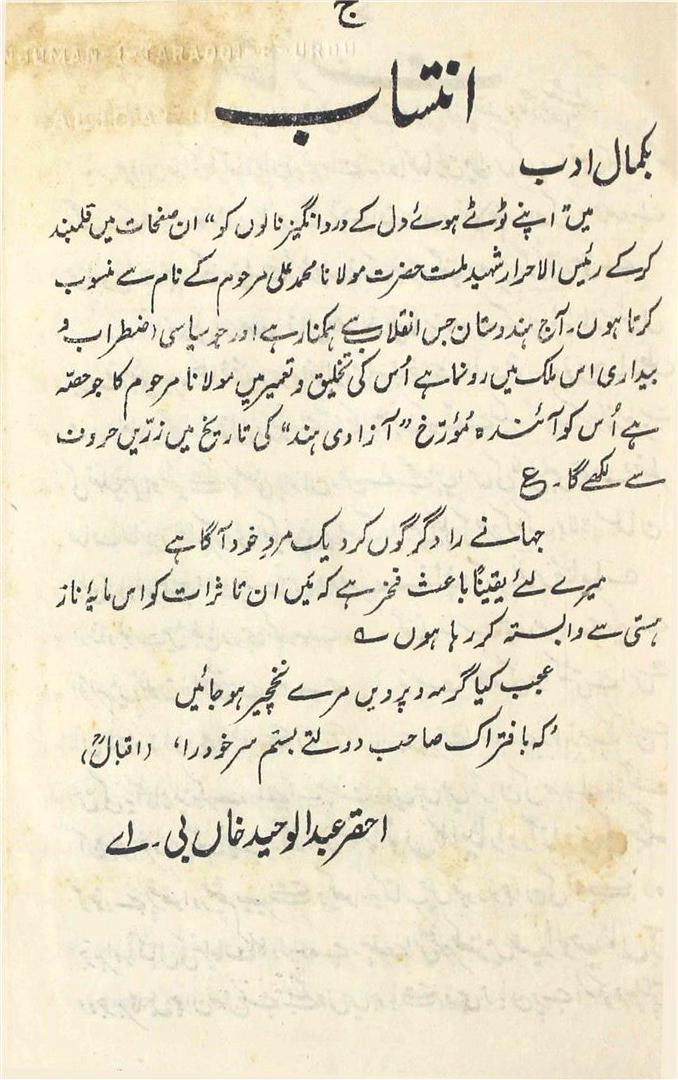 ج
ANJUMAN-I-TARAQQI-E-URDU
انتساب
بکمال ادب
میں ”اپنے ٹوٹے ہوئے دل کے دردانگیز نالوں کو“ ان صفحات میں قلمبند
کرکے رئیس الاحرار شہید ملت حضرت مولانا محمد علی مرحوم کے نام سے منسوب
کرتا ہوں۔ آج ہندوستان جس انقلاب سے ہمکنار ہے اور جو سیاسی اضطراب و
بیداری اس ملک میں رونما ہے اُس کی تخلیق و تعمیر میں مولانا مرحوم کا جو حصّہ
ہے اُس کو آئندہ مُؤرّخ ”آزادی ہند“ کی تاریخ میں زرّیں حروف
سے لکھے گا۔ ع
جہانے را دگرگوں کرد یک مردِ خود آگاہے
میرے لئے یقیناً باعث فخر ہے کہ میَں ان تاثرات کو اس مایۂ ناز
ہستی سے وابستہ کر رہا ہوں ؎
عجب کیا گر مہ و پرویں مرے نخچیر ہو جائیں
’کہ بافتراک صاحب دولتے بستم سر خود را‘ (اقبالؒ)
احقر عبدالوحید خاں بی۔ اے